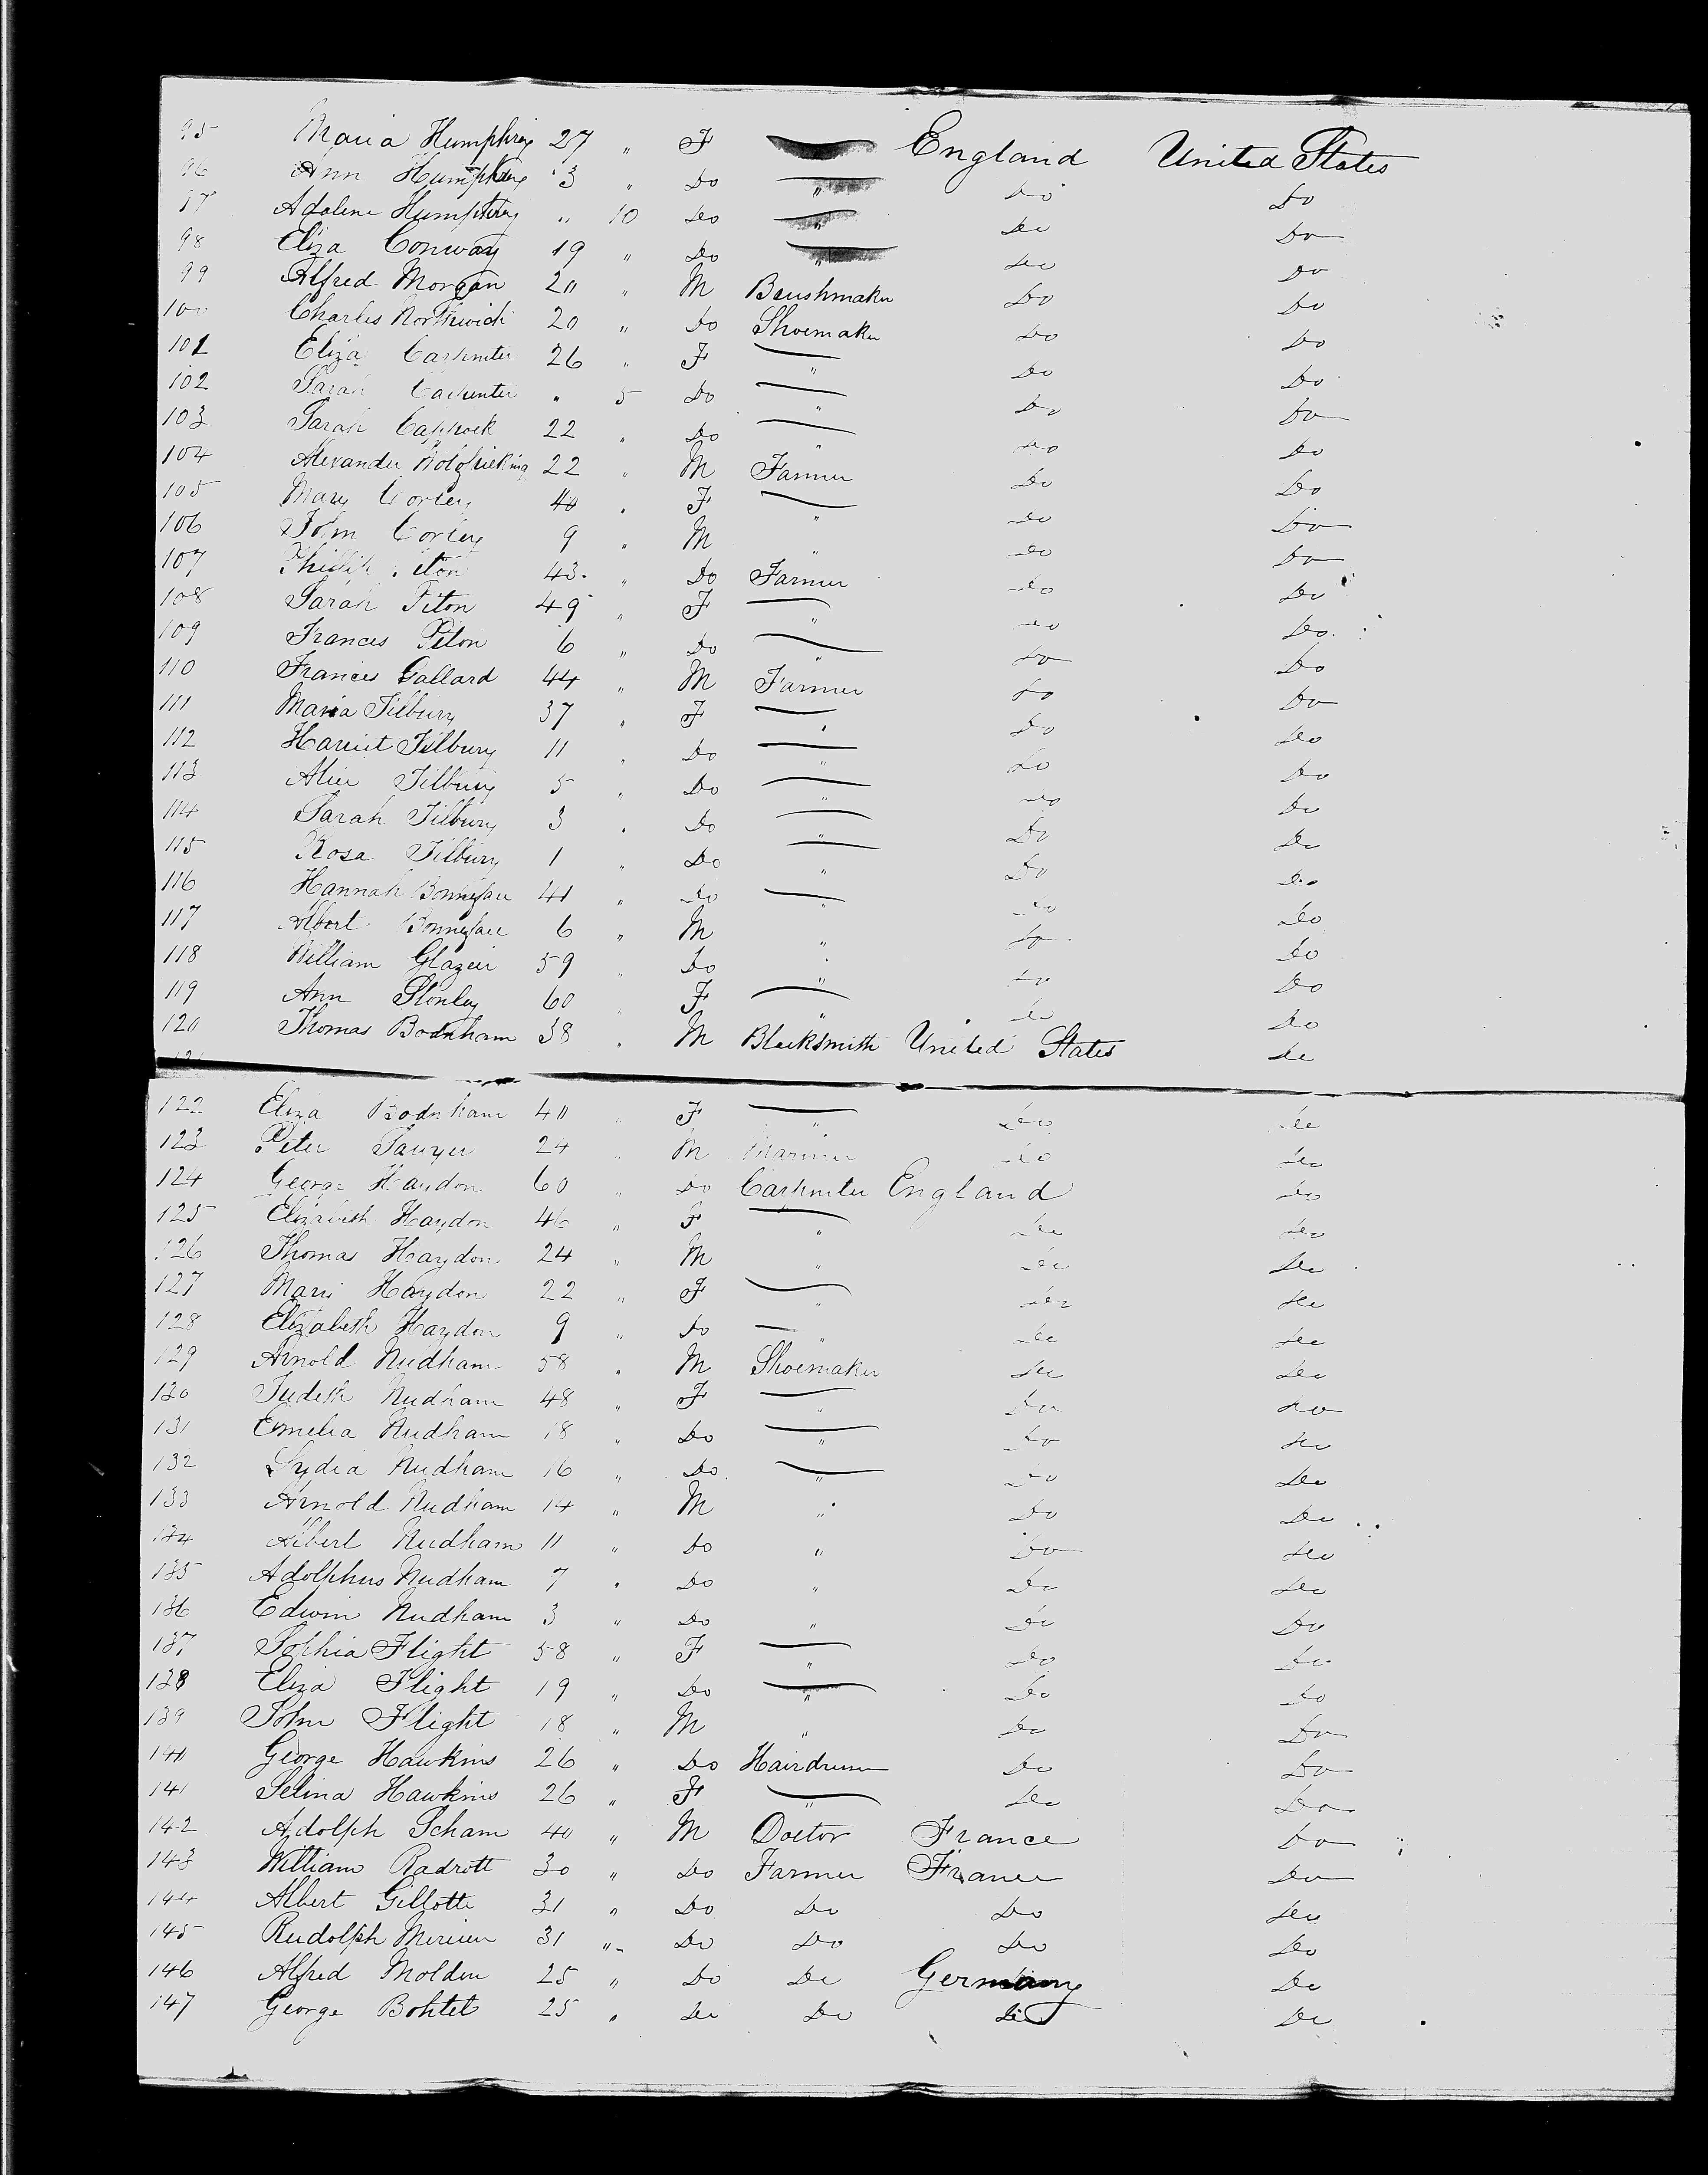 95 Maria Humphrey 27 " F England United States
96 Ann Humphrey 3 " Do " Do Do
97 Adaline Humphrey " 10 Do " Do Do
98 Eliza Conway 19 " Do " Do Do
99 Alfred Morgan 20 " M Brushmaker Do Do
100 Charles Northwick 20 " Do Shoemaker Do Do
101 Eliza Carpenter 26 " F " Do Do
102 Sarah Carpenter " 5 Do " Do Do
103 Sarah Cappock 22 " Do " Do Do
104 Alexander 22 " M Farmer Do Do
105 Mary Corley 40 " F " Do Do
106 John Corley 9 " M " Do Do
107 Phillip 43 " Do Farmer Do Do
108 Sarah Piton 49 " F " Do Do
109 Frances Piton 6 " Do " Do Do
110 Frances Gallard 44 " M Farmer Do Do
111 Maria Tilbury 37 " F " Do Do
112 Harriet Tilbury 11 " Do " Do Do
113 Alice Tilbury 5 " Do " Do Do
114 Sarah Tilbury 3 " Do " Do Do
115 Rosa Tilbury 1 " Do " Do Do
116 Hannah Bonneface 41 " Do " Do Do
117 Albort Bonneface 6 " M " Do Do
118 William Glazeir 59 " Do " Do Do
119 Ann Stonley 60 " F " Do Do
120 Thomas Bodnham 38 " M Blacksmith United States Do
122 Eliza Bodnham 40 " F " Do Do
123 Peter Sawyer 24 " M Mariner Do Do
124 George Haydon 60 " Do Carpenter England Do
125 Elizabeth Haydon 46 " F " Do Do
126 Thomas Haydon 24 " M " Do Do
127 Mary Haydon 22 " F " Do Do
128 Elizabeth Haydon 9 " Do " Do Do
129 Arnold Nudham 58 " M Shoemaker Do Do
130 Judeth Nudham 48 " F " Do Do
131 Emelia Nudham 18 " Do " Do Do
132 Lydia Nudham 16 " Do " Do Do
133 Arnold Nudham 14 " M " Do Do
134 Albert Nudham 11 " Do " Do Do
135 Adolphus Nudham 7 " Do " Do Do
136 Edwin Nudham 3 " Do " Do Do
137 Sophia Flight 58 " F " Do Do
138 Eliza Flight 19 " Do " Do Do
139 John Flight 18 " M " Do Do
140 George Hawkins 26 " Do Do Do
141 Selina Hawkins 26 " F " Do Do
142 Adolph Scham 40 " M Doctor France Do
143 William Radrott 30 " Do Farmer France Do
144 Albert Gillotte 31 " Do Do Do Do
145 Rudolph 31 " Do Do Do Do
146 Alfred Molden 25 " Do Do Germany Do
147 George Bohtel 25 " Do Do Do Do